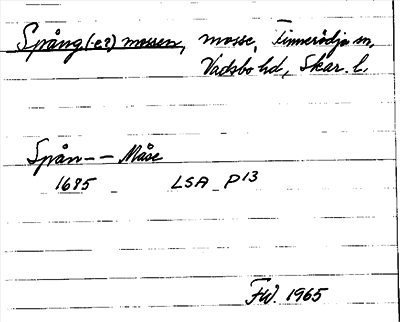 Spång(-e?) mossen, mosse, Tinnerödja sn,
Vadsbo hd, Skar. l.
Spån-- Måse
1685 LSA P13
FW. 1965